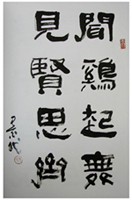 聞鷄起舞
見賢思齊